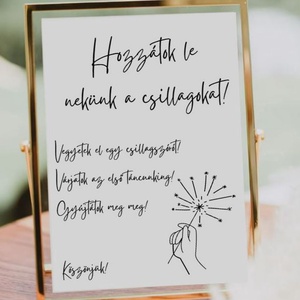 Hozzátok le
nekünk a csillagokat!
Vegyetek el egy csillagszórót!
Várjátok az első táncunking!
Gyújtjátok meg meg!
Köszönjük!